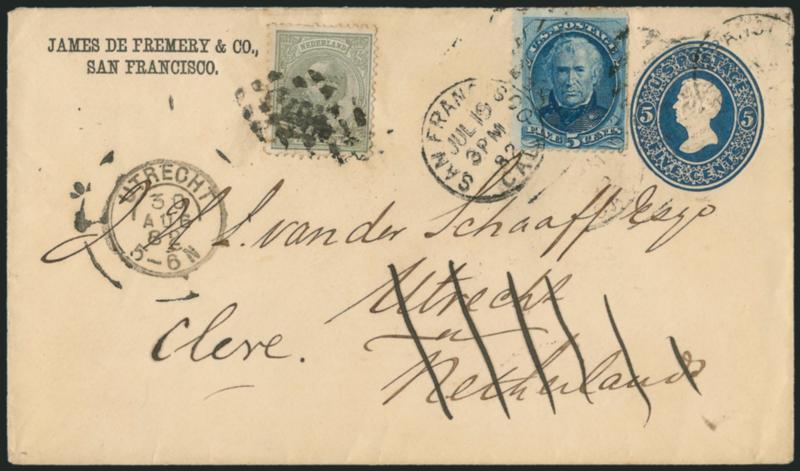 JAMES DE FREMERY & CO.,
SAN FRANCISCO.
NEDERLAND
U.S. POSTAGE
FIVE 5 CENTS
U.S. POSTAGE
5 5
FIVE CENTS
SAN FRAN
JUL 19
3 PM
82
CAL
UTRECHT
AUG
82
5-6N
L. van der Schaaff Esqr
Utrecht
Cleve.
Netherlands